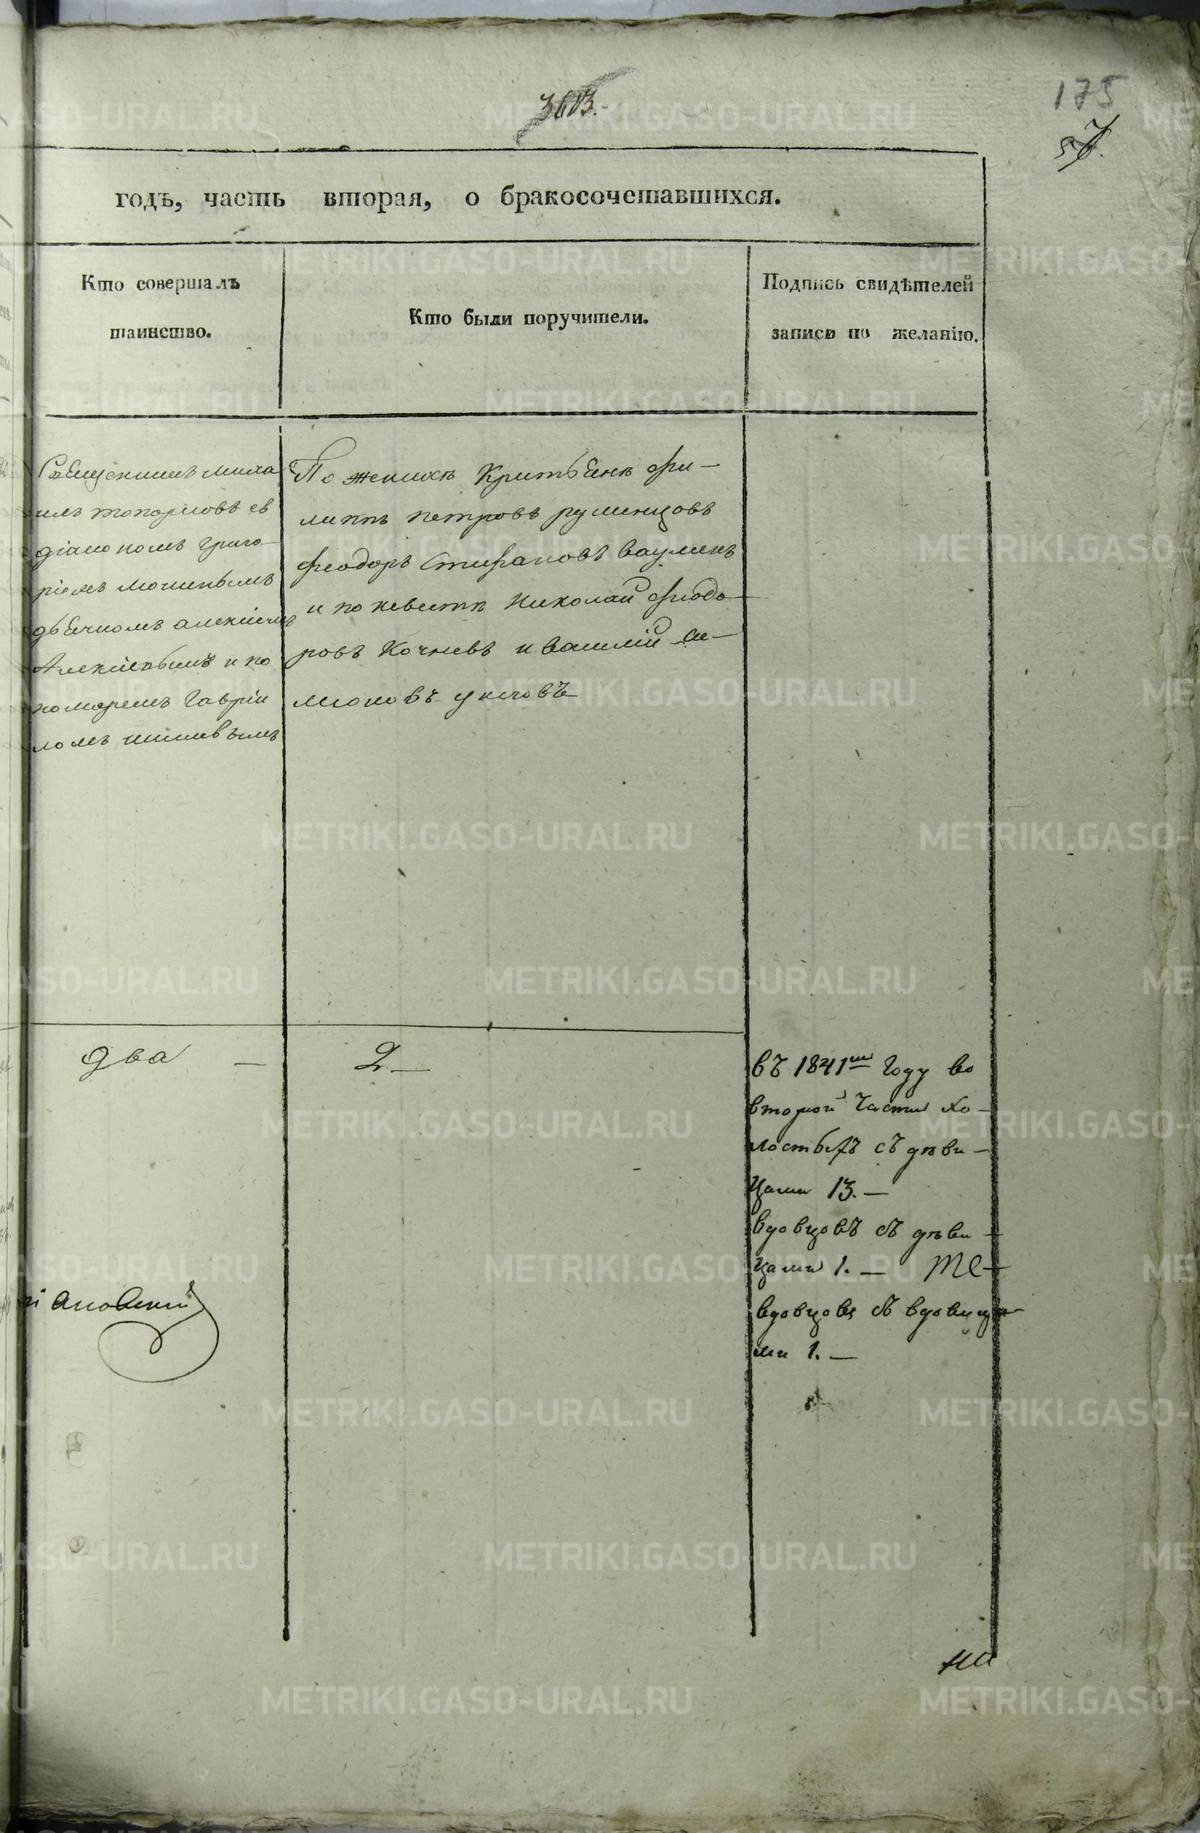 3613.
175
годъ, часть вторая, о бракосочетавшихся.
Кто совершалъ
таинство.
Кто были поручители.
Подпись свидѣтелей
записи по желанію.
Священникъ миха
илъ топорковъ съ
діакономъ Григо-
ріемъ
дьячкомъ алексіемъ
и по
номаремъ Гаврiи
ломъ
По женихѣ Крестьяне Фи-
липпъ Петровъ румянцовъ
Феодоръ Стефановъ Ваулинъ
и по невестѣ Николай Феодо-
ровъ Кочневъ и Василій
два —
2. —
въ 1841мъ Году во
второй Части Хо-
лостыхъ съ дѣви-
цами 13. —
вдовцовъ съ дѣви-
цами 1. —
вдовцовъ съ вдовица-
ми 1. —
METRIKI.GASO-URAL.RU